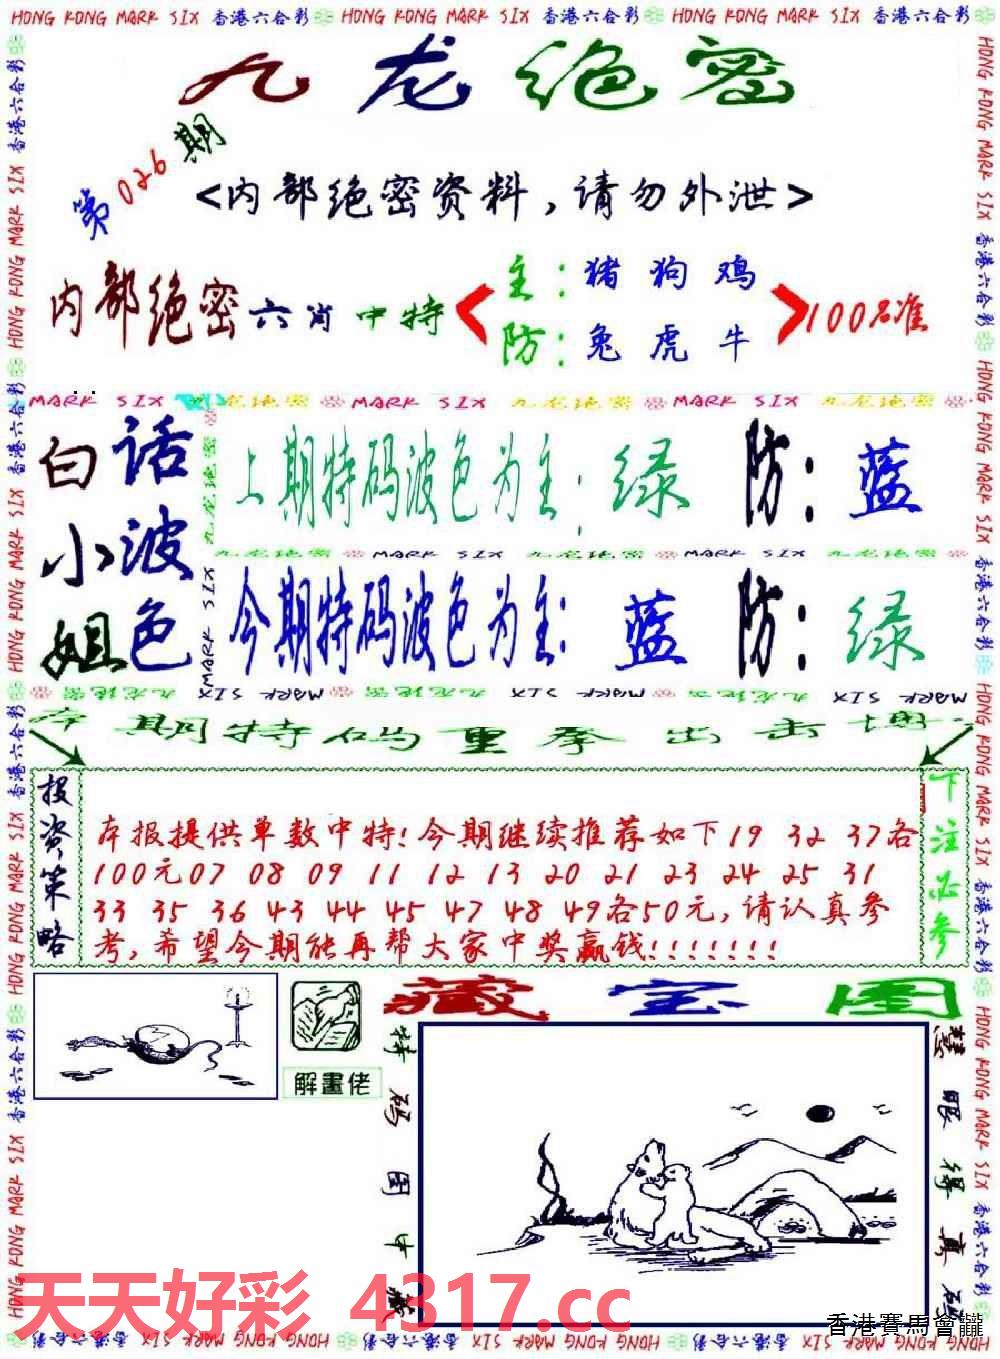 HONG KONG MARK SIX 香港六合彩 HONG KONG MARK SIX 香港六合彩 HONG KONG MARK SIX 香港六合彩
九龙绝密
第026期
<内部绝密资料,请勿外泄>
内部绝密六肖中特
主:猪狗鸡
防:兔虎牛
100%准
MARK SIX 九龙绝密 MARK SIX 九龙绝密 MARK SIX 九龙绝密
白小姐
话波色
上期特码波色为主:绿 防:蓝
九龙绝密 MARK SIX 九龙绝密 MARK SIX 九龙绝密
今期特码波色为主:蓝 防:绿
本期特码重拳出击
投资策略
本报提供单数中特!今期继续推荐如下19 32 37各
100元07 08 09 11 12 13 20 21 23 24 25 31
33 35 36 43 44 45 47 48 49各50元,请认真参
考,希望今期能再帮大家中奖赢钱!!!!!!!
下注必参
藏宝图
解畫佬
特码图中藏
慧眼得真码
天天好彩 4317.cc
香港賽馬會